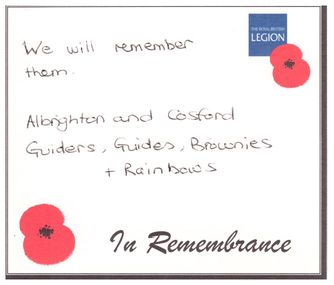 THE ROYAL BRITISH
LEGION
We will remember
them.
Albrighton and Cosford
Guiders, Guides, Brownies
+ Rainbows
In Remembrance